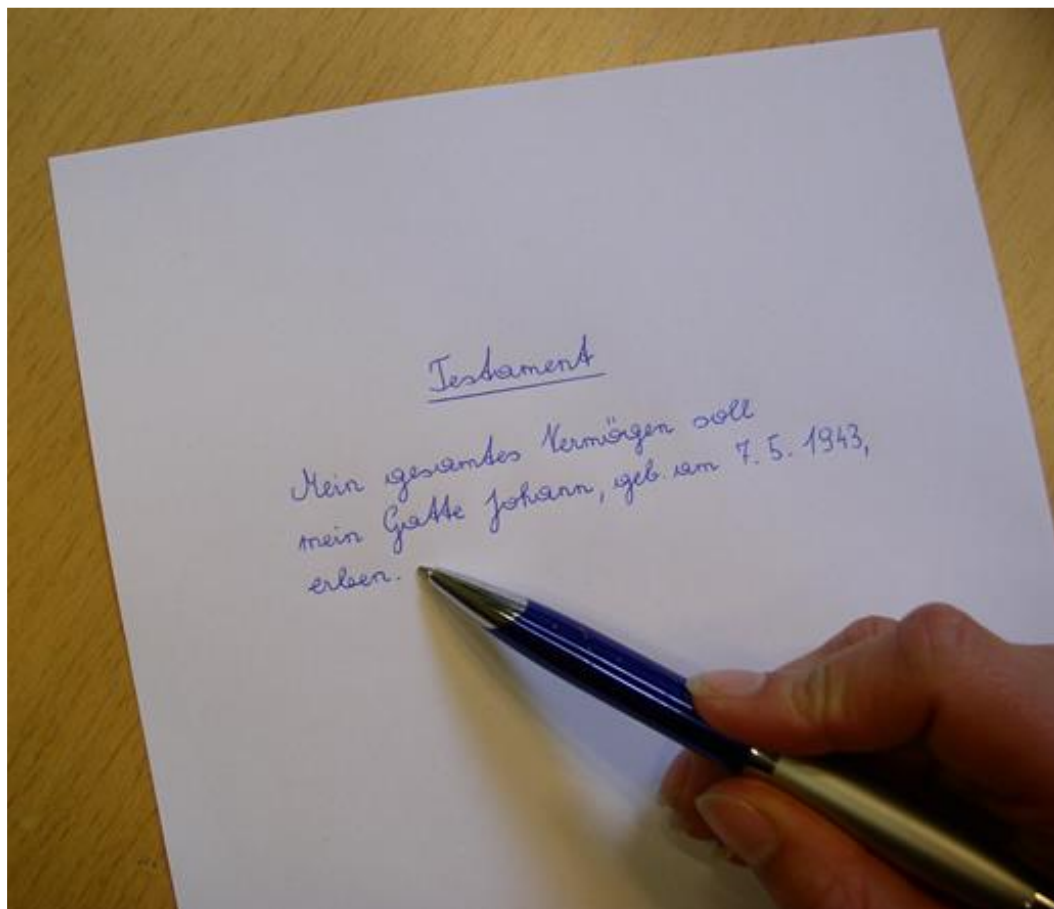 Testament
Mein gesamtes Vermögen soll
mein Gatte Johann, geb. am 7.5.1943,
erben.